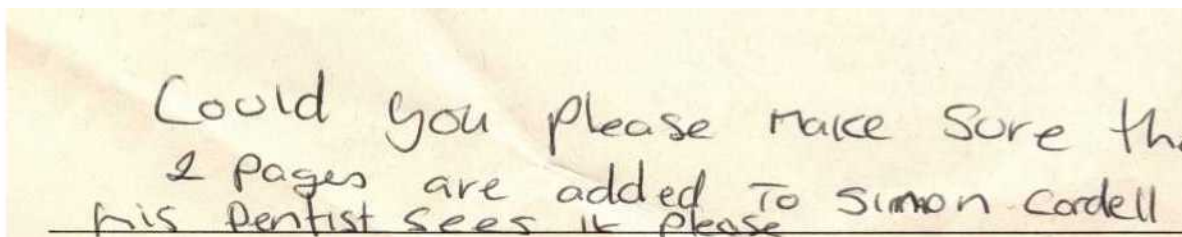 Could you please make sure
2 pages are added To Simon Cordell
his Dentist sees it please